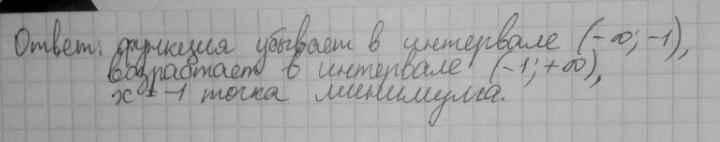 Ответ: функция убывает в интервале (-∞; -1),
возрастает в интервале (-1; +∞),
x = -1 точка минимума.